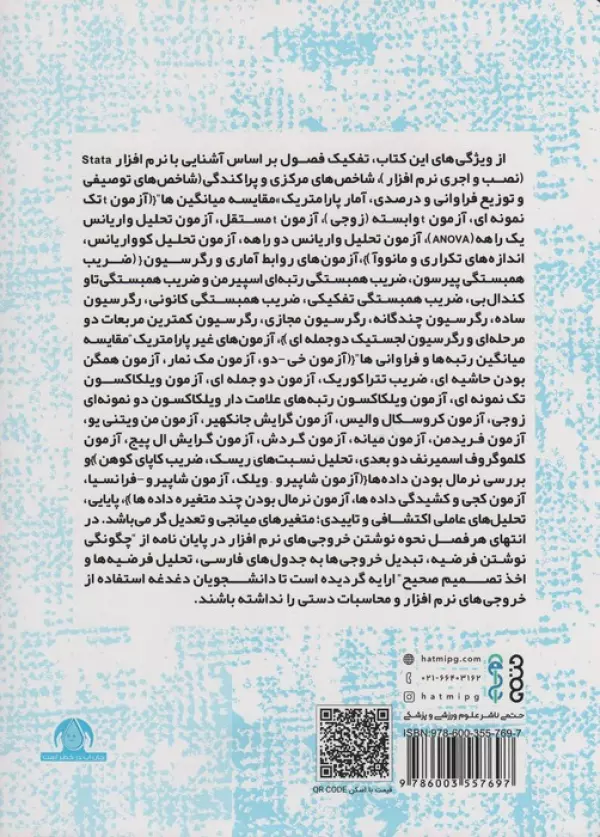 از ویژگی‌های این کتاب، تفکیک فصول بر اساس آشنایی با نرم افزار Stata
(نصب و اجری نرم افزار)، شاخص‌های مرکزی و پراکندگی(شاخص‌های توصیفی
و توزیع فراوانی و درصدی، آمار پارامتریک»مقایسه میانگین ها"{(آزمون t تک
نمونه ای، آزمون t وابسته (زوجی)، آزمون t مستقل، آزمون تحلیل واریانس
یک راهه(ANOVA)، آزمون تحلیل واریانس دو راهه، آزمون تحلیل کوواریانس،
اندازه‌های تکراری و مانووآ)}، آزمون‌های روابط آماری و رگرسیون{ (ضریب
همبستگی پیرسون، ضریب همبستگی رتبه‌ای اسپیرمن و ضریب همبستگی تاو
کندال بی، ضریب همبستگی تفکیکی، ضریب همبستگی کانونی، رگرسیون
ساده، رگرسیون چندگانه، رگرسیون مجازی، رگرسیون کمترین مربعات دو
مرحله‌ای و رگرسیون لجستیک دوجمله ای)}، آزمون‌های غیر پارامتریک"مقایسه
میانگین رتبه‌ها و فراوانی ها"{(آزمون خی -دو، آزمون مک نمار، آزمون همگن
بودن حاشیه ای، ضریب تتراکوریک، آزمون دو جمله ای، آزمون ویلکاکسون
تک نمونه ای، آزمون ویلکاکسون رتبه‌های علامت دار ویلکاکسون دو نمونه‌ای
زوجی، آزمون کروسکال والیس، آزمون گرایش جانکهیر، آزمون من ویتنی یو،
آزمون فریدمن، آزمون میانه، آزمون گردش، آزمون گرایش ال پیج، آزمون
کلموگروف اسمیرنف دو بعدی، تحلیل نسبت‌های ریسک، ضریب کاپای کوهن)}و
بررسی نرمال بودن داده‌ها{(آزمون شاپیرو -ویلک، آزمون شاپیرو-فرانسیا،
آزمون کجی و کشیدگی داده ها، آزمون نرمال بودن چند متغیره داده ها)}، پایایی،
تحلیل‌های عاملی اکتشافی و تاییدی؛ متغیرهای میانجی و تعدیل گر می‌باشد. در
انتهای هرفصل نحوه نوشتن خروجی‌های نرم افزار در پایان نامه از "چگونگی
نوشتن فرضیه، تبدیل خروجی‌ها به جدول‌های فارسی، تحلیل فرضیه‌ها و
اخذ تصمیم صحیح" ارایه گردیده است تا دانشجویان دغدغه استفاده از
خروجی‌های نرم افزار و محاسبات دستی را نداشته باشند.
hatmipg.com
۰۲۱-۶۶۴۰۳۱۶۲
hatmipg
حتمی
حتمی ناشر علوم ورزشی و پزشکی
ISBN:978-600-355-769-7
9 786003 557697
قیمت با اسکن QR CODE